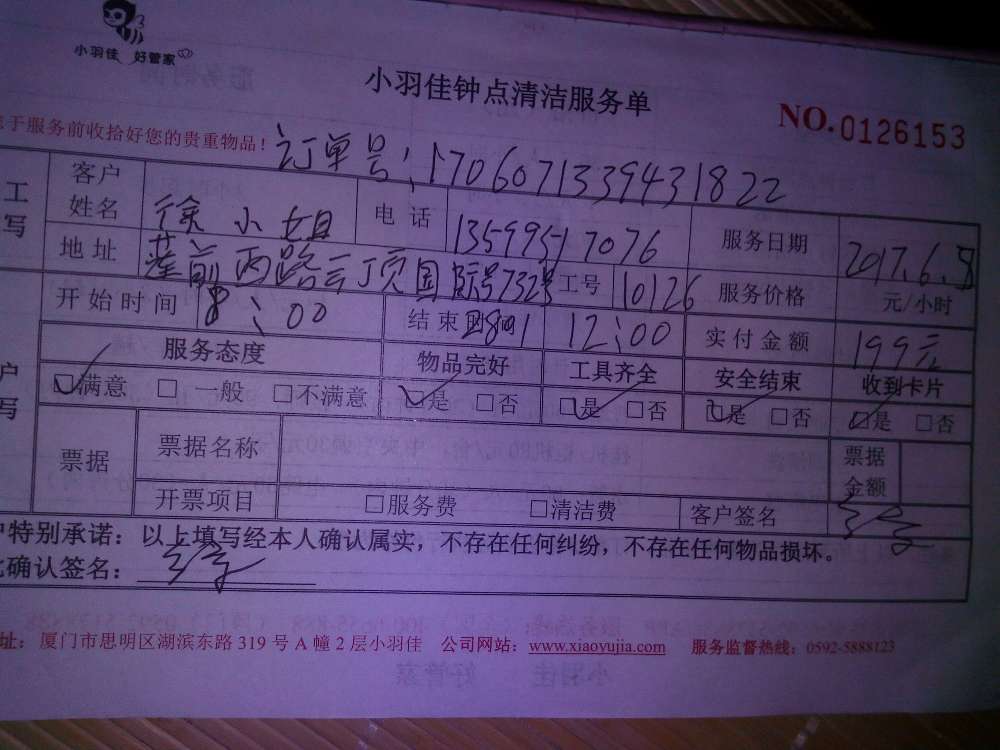 小羽佳 好管家
小羽佳钟点清洁服务单
NO.0126153
于服务前收拾好您的贵重物品!
订单号:1706071339431822
工
写
客户
姓名
徐小姐
电话
13599517076
服务日期
2017.6.8
地址
前西路云顶国际号732号
工号
10126
服务价格
元/小时
开始时间
8:00
结束
12:00
实付金额
199元
户
写
服务态度
物品完好
工具齐全
安全结束
收到卡片
☑满意 □一般 □不满意
☑是 □否
☑是 □否
☑是 □否
☑是 □否
票据
票据名称
票据
金额
开票项目
□服务费 □清洁费
客户签名
户特别承诺:以上填写经本人确认属实,不存在任何纠纷,不存在任何物品损坏。
确认签名:
址:厦门市思明区湖滨东路 319 号 A 幢 2 层小羽佳 公司网站:www.xiaoyujia.com 服务监督热线:0592-5888123